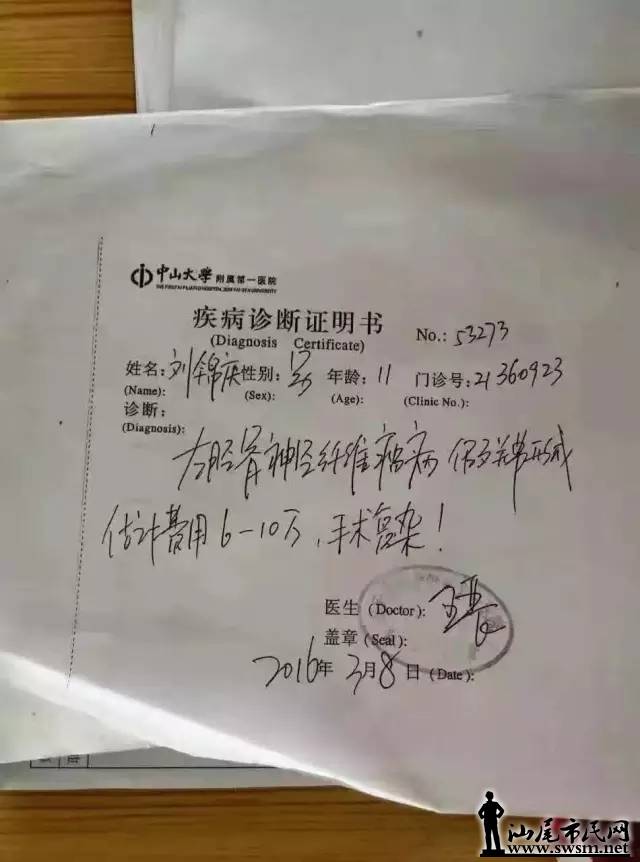 中山大学 附属第一医院
THE FIRST AFFILIATED HOSPITAL, SUN YAT-SEN UNIVERSITY
疾病诊断证明书
(Diagnosis Certificate)
No.: 53273
姓名: 刘锦庆 性别: 男 年龄: 11 门诊号: 21360923
(Name): (Sex): (Age): (Clinic No.):
诊断:
(Diagnosis):
左胫骨神经纤维瘤病 假关节形成
估计费用6-10万,手术复杂!
医生 (Doctor):
盖章 (Seal):
2016年3月8日 (Date):
汕尾市民网
www.swsm.net